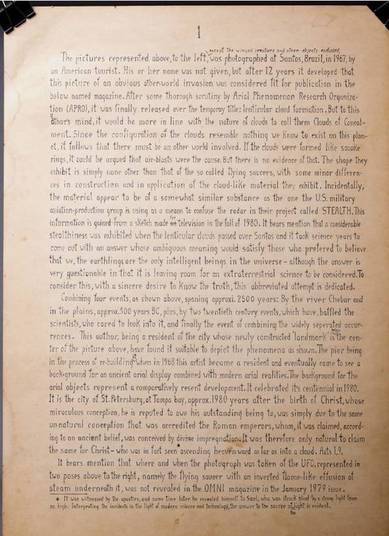 1
except the winged creature and other objects included,
The pictures represented above, to the left, was photographed at Santos, Brazil, in 1967, by
an American tourist. His or her name was not given, but after 12 years it developed that
this picture of an obvious other-world invasion was considered fit for publication in the
below named magazine. After some thorough scrutiny by Arial Phenomenon Research Organiza-
tion (APRO), it was finally released over the temporary title: lenticular cloud formation. But to this
author's mind, it would be more in line with the nature of clouds to call them Clouds of Conceal-
ment. Since the configuration of the clouds resemble nothing we know to exist on this plan-
et, it follows that there must be an other world involved. If the clouds were formed like smoke
rings, it could be argued that air-blasts were the cause. But there is no evidence of that. The shape they
exhibit is simply none other than that of the so called flying saucers, with some minor differen-
ces in construction and in application of the cloud-like material they exhibit. Incidentally,
the material appear to be of a somewhat similar substance as the one the U.S. military
aviation-production group is using as a means to confuse the radar in their project called STEALTH. This
information is quoted from a sketch made on television in the fall of 1980. It bears mention that a considerable
stealthiness was exhibited when the lenticular clouds passed over Santos and it took science years to
come out with an answer whose ambiguous meaning would satisfy those who prefered to believe
that we, the earthlings, are the only intelligent beings in the universe - although the answer is
very questionable in that it is leaving room for an extraterrestrial science to be considered. To
consider this, with a sincere desire to know the truth, this abbreviated attempt is dedicated.
Combining four events, as shown above, spaning approx. 2500 years: By the river Chebar and
in the plains, approx. 500 years BC, plus, by two twentieth century events, which have baffled the
scientists, who cared to look into it, and finally the event of combining the widely seperated occur-
rences. This author, being a resident of the city whose newly constructed landmark is the cen-
ter of the picture above, have found it suitable to depict the phenomena as shown. The pier being
in the process of re-building when in 1968 this artist become a resident and eventually came to see a
background for an ancient arial display combined with modern arial realities. The background for the
arial objects represent a comparatively resent development. It celebrated its centennial in 1980.
It is the city of St. Petersburg, at Tampa bay, approx. 1980 years after the birth of Christ, whose
miraculous conception, he is reputed to owe his outstanding being to, was simply due to the same
un-natural conception that was accredited the Roman emperors, whom, it was claimed, accord-
ing to an ancient belief, was conceived by divine impregnation. It was therefore only natural to claim
the same for Christ - who was in fact seen ascending heavenward so far as into a cloud. Acts 1,9.
It bears mention that where and when the photograph was taken of the UFO, represented in
two poses above to the right, namely the flying saucer with an inverted flame-like effusion of
steam underneath it, was not revealed in the OMNI magazine in the January 1979 issue.
It was witnessed by the apostles, and some time later he revealed himself to Saul, who was struck blind by a strong light from
on high. Interpreting the incidents in the light of modern science and technology, the answer to the source of light is evident.